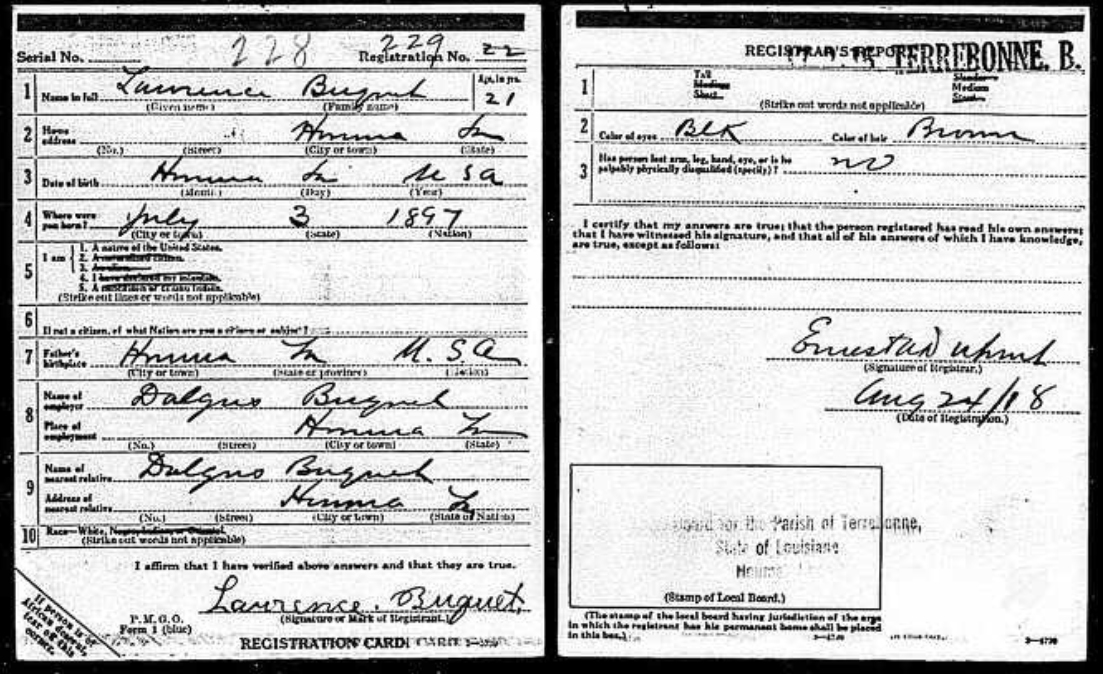 Serial No. 228 Registration No. 229 22
1 Name in full Lawrence Buquet Age, in yrs. 21
(Given name) (Family name)
2 Home address Houma La
(No.) (Street) (City or town) (State)
3 Date of birth Houma La U S A
(Month) (Day) (Year)
4 Where were you born? July 3 1897
(City or town) (State) (Nation)
5 I am
1. A native of the United States.
2. A naturalized citizen.
3. An alien.
4. I have declared my intention.
5. A noncitizen or citizen Indian.
(Strike out lines or words not applicable)
6 If not a citizen, of what Nation are you a citizen or subject?
7 Father's birthplace Houma La U. S A
(City or town) (State or province) (Nation)
8 Name of employer Dalgus Buquet
Place of employment Houma La
(No.) (Street) (City or town) (State)
9 Name of nearest relative Dalgus Buquet
Address of nearest relative Houma La
(No.) (Street) (City or town) (State or Nation)
10 Race—White, Negro, Indian, or Oriental.
(Strike out words not applicable)
I affirm that I have verified above answers and that they are true.
Lawrence. Buquet,
(Signature or Mark of Registrant.)
P. M. G. O.
Form 1 (blue)
REGISTRATION CARD
If person is of
African descent,
tear off this
corner.
REGISTRAR'S REPORT TERREBONNE. B.
1 Tall Slender
Medium Medium
Short Stout
(Strike out words not applicable)
2 Color of eyes Blk Color of hair Brown
3 Has person lost arm, leg, hand, eye, or is he
palpably physically disqualified (specify)? no
I certify that my answers are true; that the person registered has read his own answers;
that I have witnessed his signature, and that all of his answers of which I have knowledge,
are true, except as follows:
(Signature of Registrar.)
Aug 24/18
(Date of Registration.)
Board for the Parish of Terrebonne,
State of Louisiana
Houma
(Stamp of Local Board.)
(The stamp of the local board having jurisdiction of the area
in which the registrant has his permanent home shall be placed
in this box.)